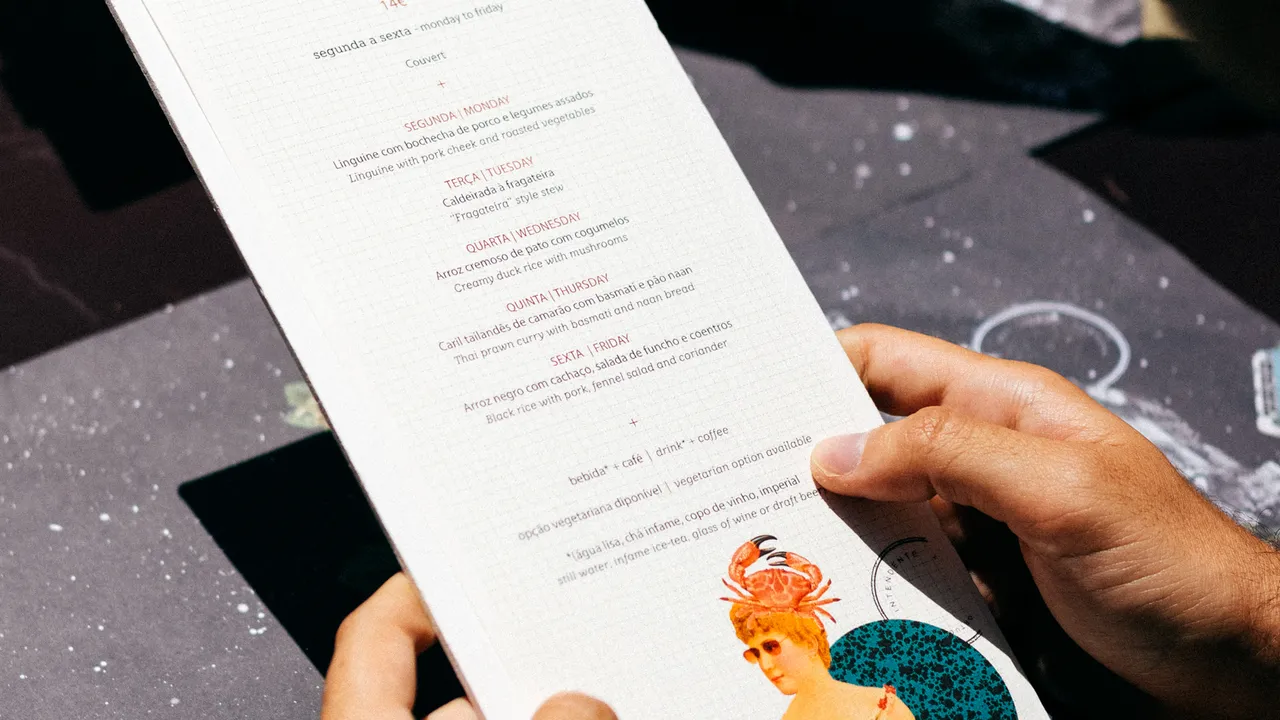 14€
segunda a sexta - monday to friday
Couvert
+
SEGUNDA | MONDAY
Linguine com bochecha de porco e legumes assados
Linguine with pork cheek and roasted vegetables
TERÇA | TUESDAY
Caldeirada à fragateira
"Fragateira" style stew
QUARTA | WEDNESDAY
Arroz cremoso de pato com cogumelos
Creamy duck rice with mushrooms
QUINTA | THURSDAY
Caril tailandês de camarão com basmati e pão naan
Thai prawn curry with basmati and naan bread
SEXTA | FRIDAY
Arroz negro com cachaço, salada de funcho e coentros
Black rice with pork, fennel salad and coriander
+
bebida* + café | drink* + coffee
opção vegetariana diponível | vegetarian option available
*(água lisa, chá infame, copo de vinho, imperial
still water, infame ice-tea, glass of wine or draft beer
INTENDENTE